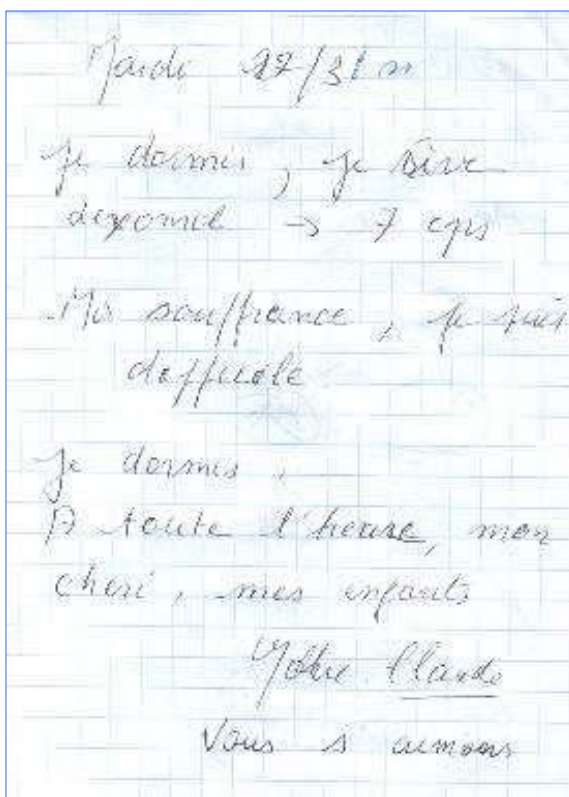 Mardi 27/3/
je dormis, je
→ 7 cps
Ma souffrance, je suis
dofficole
Je dormis.
A toute l'heure, mon
cheri, mes enfants
Votre Claude
Vous s aimons